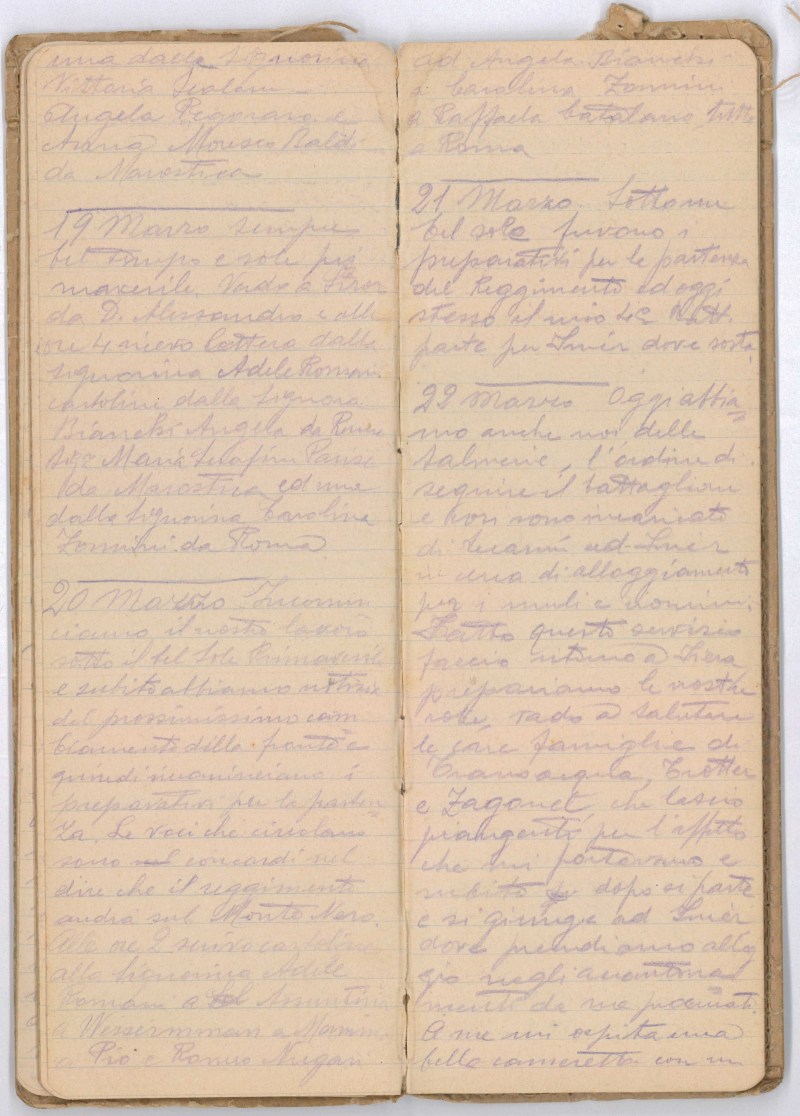 una dalle Signorine
Vittoria Scalam
Angela Pegoraro e
Anna Moresco Baldi
da Marostica
19 Marzo Sempre
bel tempo e sole pri
maverile. Vado a
da D. Alessandro e alle
ore 4 ricevo lettera dalla
signorina Adele Romani
cartoline dalla Signora
Bianchi Angela da Roma
Maria Serafin Parise
da Marostica ed una
dalla Signorina Carolina
Zonnini da Roma
20 Marzo Incomin
ciamo il nostro lavoro
sotto il bel Sole Primaverile
e subito abbiamo notizie
del prossimissimo cam
biamento della fronte e
quindi incominciano i
preparativi per la parten
za. Le voci che circolano
sono concordi nel
dire che il reggimento
andrà sul Monte Nero.
Alle ore 2 scrivo cartoline
alla Signorina Adele
Romani a Assuntina
a Wessermman a
a Pio e Romeo Nugari
ad Angela Bianchi
a Carolina Zonnini
a Raffaela Catalano, tutte
a Roma
21 Marzo. Sotto un
bel sole furono i
preparativi per la partenza
del Reggimento ed oggi
stesso il mio 4º Batt.
parte per Imèr dove sosta.
22 Marzo Oggi abbia
mo anche noi delle
salmerie, l'ordine di
seguire il battaglione
e sono incaricato
di recarmi ad Imèr
in cerca di alloggiamento
per i muli e uomini.
Fatto questo servizio
faccio ritorno a Siera
prepariamo le nostre
robe, vado a salutare
le care famiglie di
Trotter
e Zagonel, che lascio
piangenti, per l'affetto
che mi portavano e
subito dopo si parte
e si giunge ad Imèr
dove prendiamo allog
gio negli accantona
menti da me procurati.
A me mi ospita una
bella cameretta con un